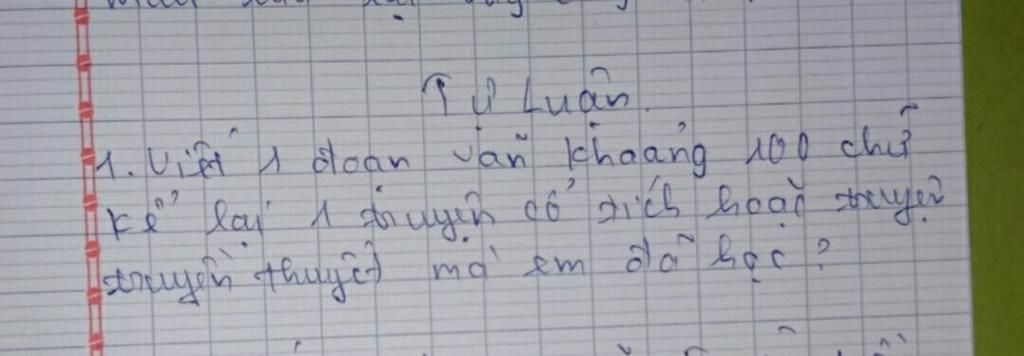 Tự Luận
1. Viết 1 đoạn văn khoảng 100 chữ
kể lại 1 truyện cổ tích hoặc truyện
truyền thuyết mà em đã học?